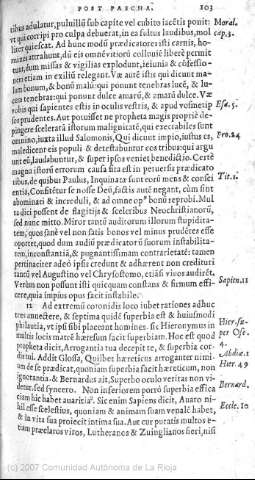 POST PASCHA. 303
tibus adulatur, puluillũ sub capite vel cubito iactitis ponit: Moral.
vt qui corripi pro culpa debuerat, in ea fultus laudibus mol cap.3.
liter quiescat. Ad hunc modũ prædicatores isti carnis, ho-
mines attrahunt, dũ eis omnẽ vitiorũ colluuiẽ liberè permit
tunt, dum missas & vigilias explodunt, ieiunia & cõfessio-
nes etiam in exilium relegant. Væ autẽ istis qui dicunt ma-
lum bonum, & bonũ malũ: qui ponunt tenebras lucẽ, & lu-
cem tenebras: qui ponunt dulce amarũ, & amarũ dulce. Væ
vobis qui sapientes estis in oculis vestris, & apud vosmetip Esa.5.
sos prudentes. Aut potuisset ne propheta magis propriè de-
pingere sceleratã istorum malignitatẽ, qui execrabiles sunt
omnino, iuxta illud Salomonis, Qui dicunt impio, iustus es, Pro.24
maledicent eis populi & detestabuntur eos tribus: qui argu
unt eũ, laudabuntur, & super ipsos veniet benedictio. Certè
magna istorũ errorum causa sita est in peruersis prædicato
ribus, de quibus Paulus, Inquinata sunt eorũ mens & consci Tit.1.
entia, Confitẽtur se nosse Deũ, factis autẽ negant, cùm sint
abominati & increduli, & ad omne opꝰ bonũ reprobi. Mul
ta dici possent de flagitijs & sceleribus Neochristianorũ,
sed nunc mitto. Miror tantũ auditorum illorum stupidita-
tem, quos sanè vel non satis bonos vel minus prudẽtes esse
oportet, quòd dum audiũ prædicatorũ suorum instabilita-
tem, inconstantiã, & pugnantissimam contrarietatẽ: tamen
pertinaciter adeò ipsis credunt & adhærent non crediturì
tantũ vel Augustino vel Chrysostomo, etiãsi viuos audirẽt.
Verùm non possunt isti quicquam constans & firmum effi- Sapiẽ.11
cere, quia impius opus facit instabile.
12 Ad extremũ coronidis loco iubet rationes adhuc
tres annectere, & septima quidẽ superbia est & huiusmodi
philautia, vt ipsi sibi placeant homines. Sic Hieronymus in
multis locis matrẽ hæresum facit superbiam. Hoc est quod
propheta dicit, Arrogantia tua decepit te, & superbia cor-
dis tui. Addit Glossa, Quilbet hæreticus arroganter nimi- Abdiæ.1
um de se prædicat, quoniam superbiam facit hæreticum, non Hier.49
ignorantia. & Bernardus ait, Superbo oculo veritas non vi-
detur, sed syncero. Non inferiorem porrò superbia effica Bernard.
tiam hic habet auaritia. Sic enim Sapiens dicit, Auaro ni-
hil esse scelestius, quoniam & animam suam venalẽ habet, Eccle.10
& in vita sua proiecit intima sua. Aut cur putatis multos e-
tiam præclaros viros, Lutheranos & Zuinglianos fieri, nisi
(c) 2007 Comunidad Autónoma de La Rioja